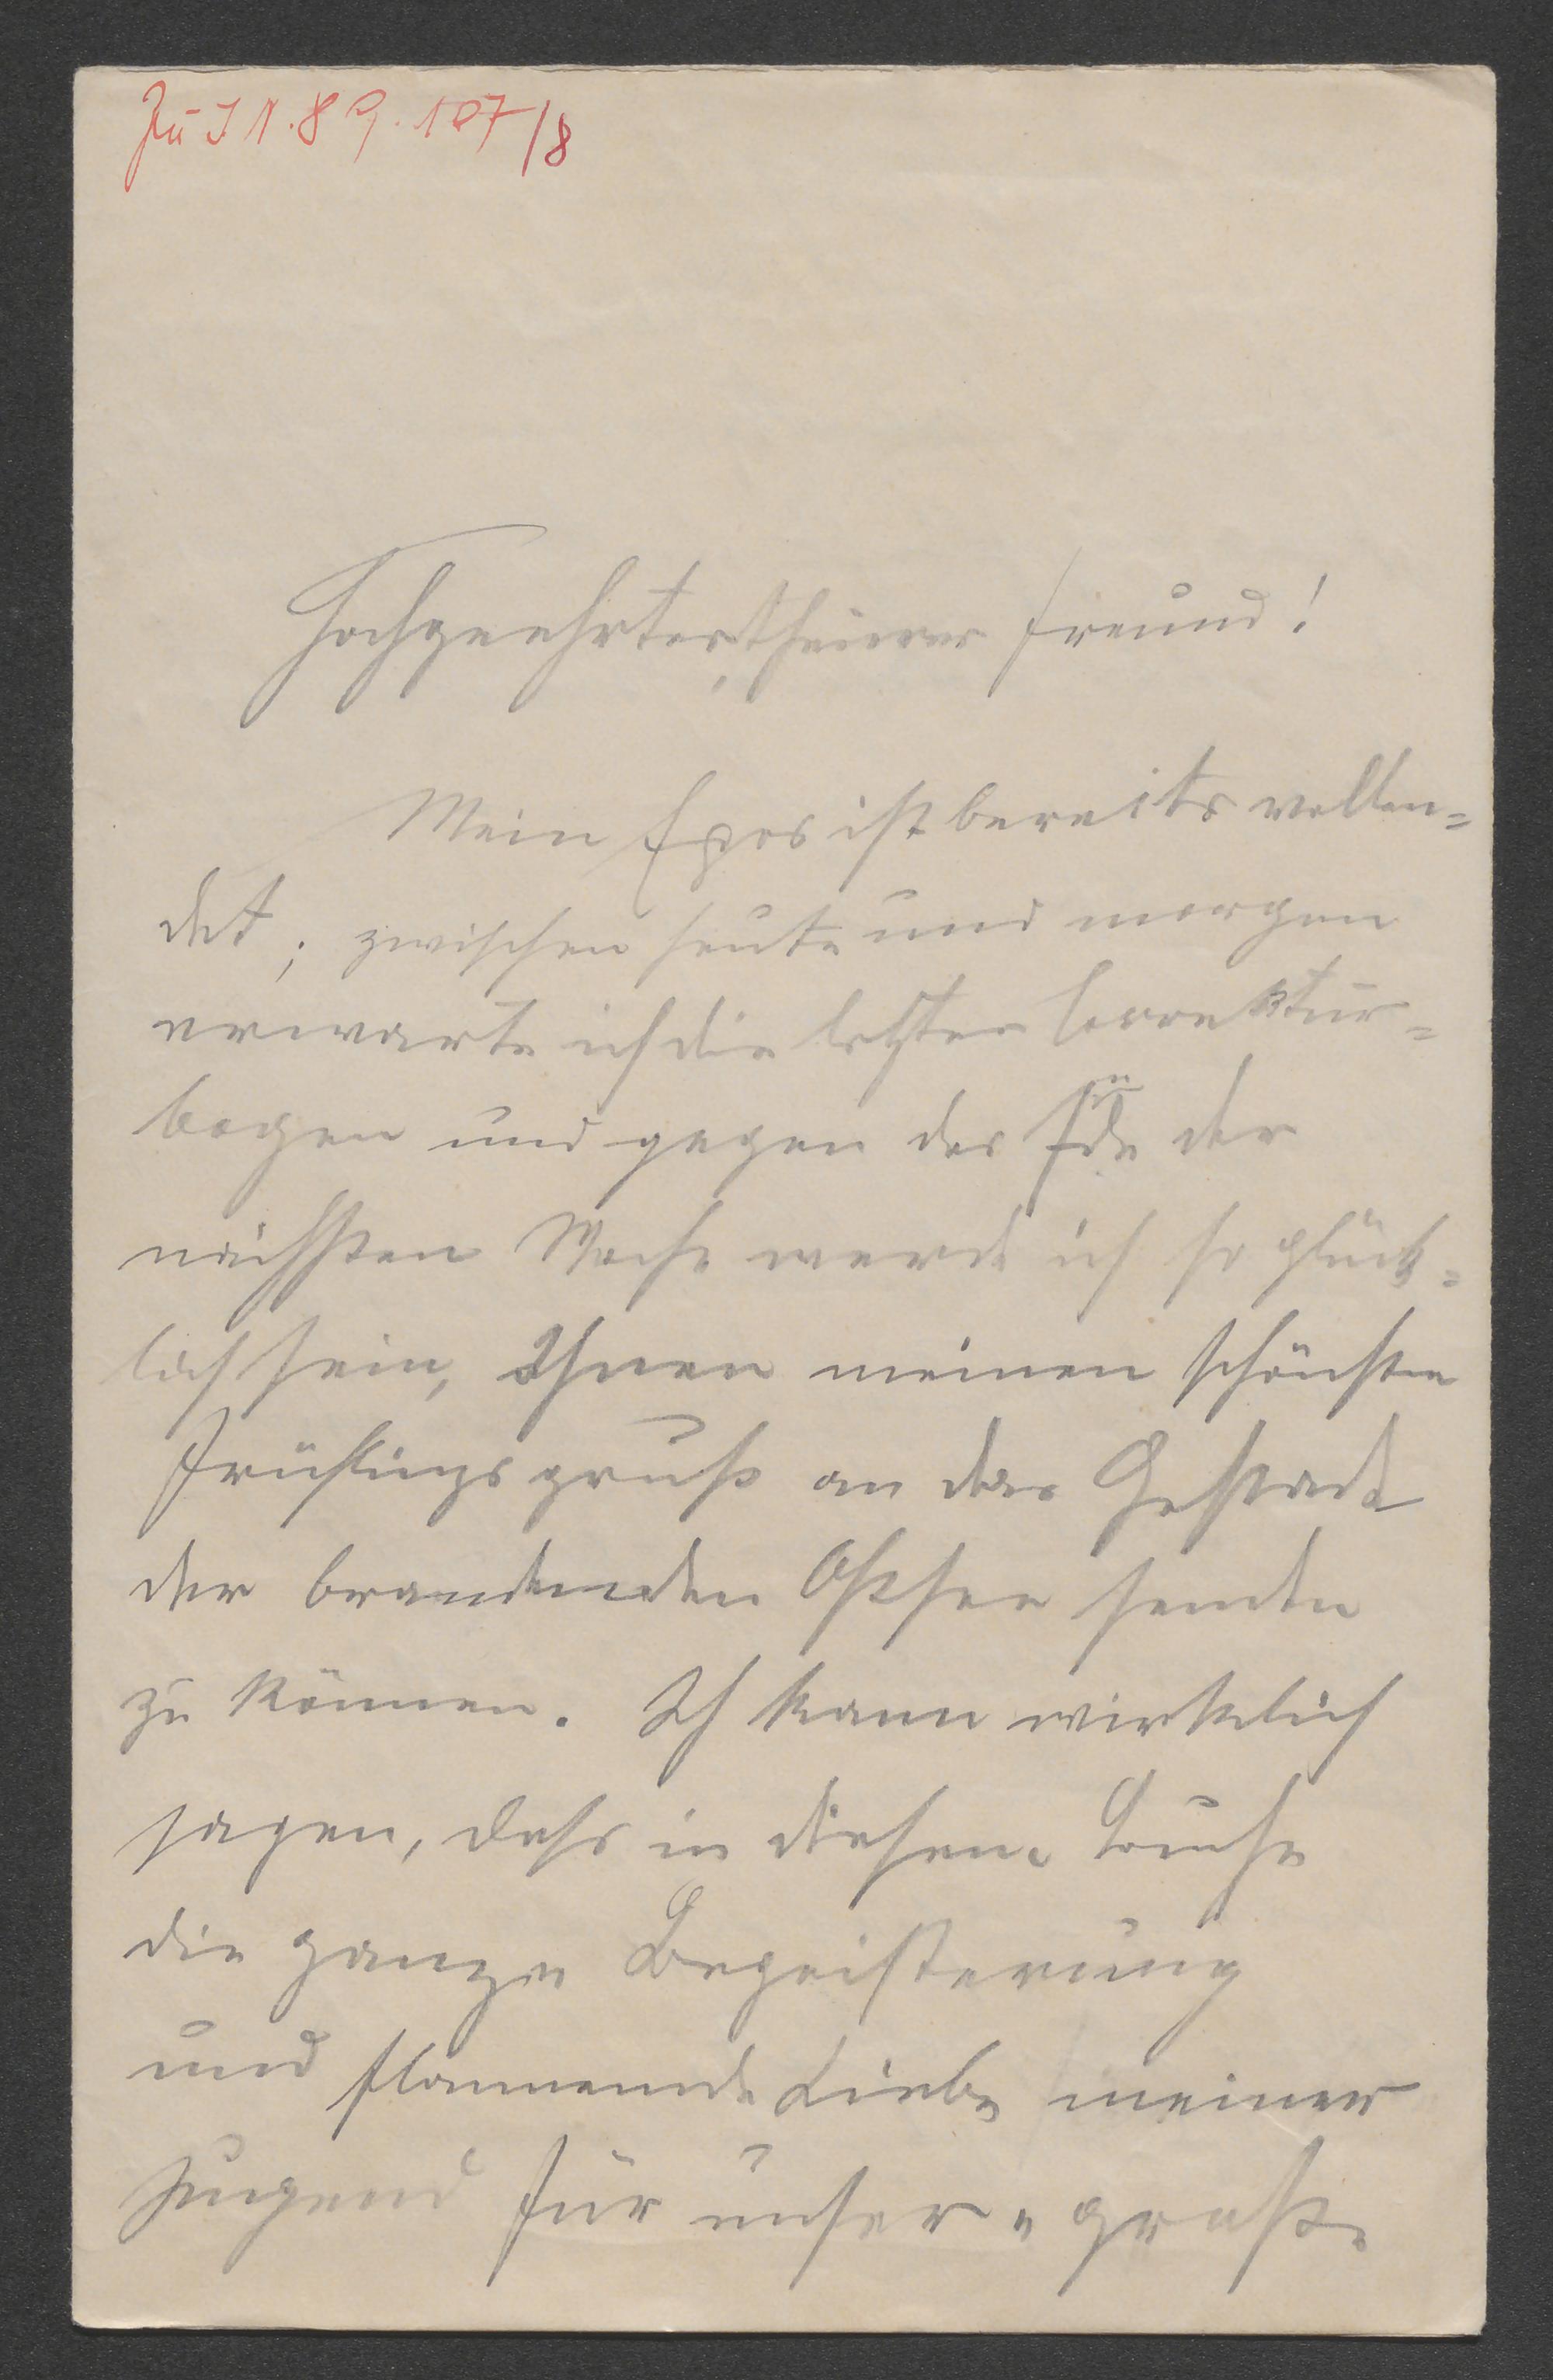 Zu I N. 89.107/8
Hochgeehrter, theurer Freund!
Mein Epos ist bereits vollen=
det; zwischen heute und morgen
erwarte ich die letzten Correktur=
bogen und gegen das Ende der
nächsten Woche werde ich so glück=
lich sein, Ihnen meinen schönsten
Frühlingsgruß an das Gestade
der brandenden Ostsee senden
zu können. Ich kann wirklich
sagen, dass in diesem Buche
die ganze Begeisterung
und flammende Liebe meiner
Jugend für unser „große